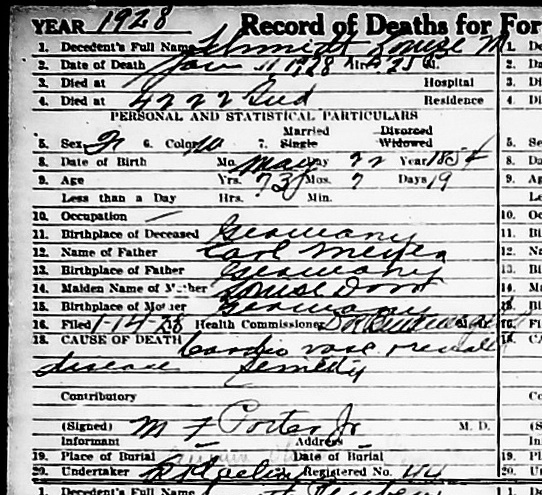 YEAR 1928 Record of Deaths for For
1. Decedent's Full Name Schmidt Louise M
2. Date of Death Jan 11 1928 Hr. 5 25 M.
3. Died at Hospital
4. Died at 4222 Residence
PERSONAL AND STATISTICAL PARTICULARS
5. Sex F 6. Color W 7. Married Single Divorced Widowed
8. Date of Birth Mo. May Day 22 Year 1854
9. Age Yrs. 73 Mos. 7 Days 19
Less than a Day Hrs. Min.
10. Occupation —
11. Birthplace of Deceased Germany
12. Name of Father Carl Meyer
13. Birthplace of Father Germany
14. Maiden Name of Mother Louise
15. Birthplace of Mother Germany
16. Filed 1-14-28 Health Commissioner
18. CAUSE OF DEATH Cardio vasc renal
disease Senility
Contributory
(Signed) M F Porter Jr M. D.
Informant Address
19. Place of Burial Date of Burial
20. Undertaker Registered No. 44
1. Decedent's Full Name